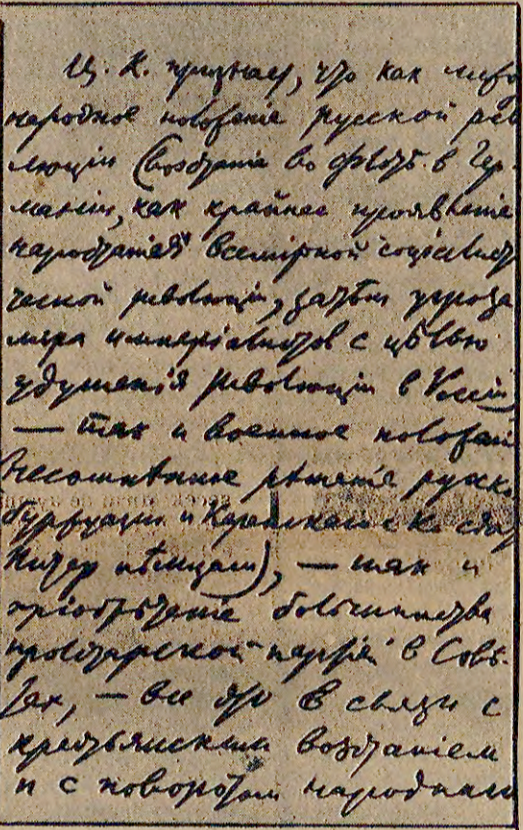 Ц. К. признает, что как между
народное положеніе русской рев
люціи (возстаніе во флотѣ в Гер-
маніи, как крайнее проявленіе
наростанія всемірной соціалист
ческой революціи, затѣм угроза
мира имперіалистов с цѣлью
удушенія революціи в Россіи)
— так и военное положені
(несомнѣнное рѣшеніе русск.
буржуазіи и Керенскаго с Ко сдат
Питер нѣмцам), — так и
пріобрѣтеніе большинства
пролетарской партіей в Совѣ-
тах, — все это в связи с
крестьянским возстаніем
и с поворотом народнаго